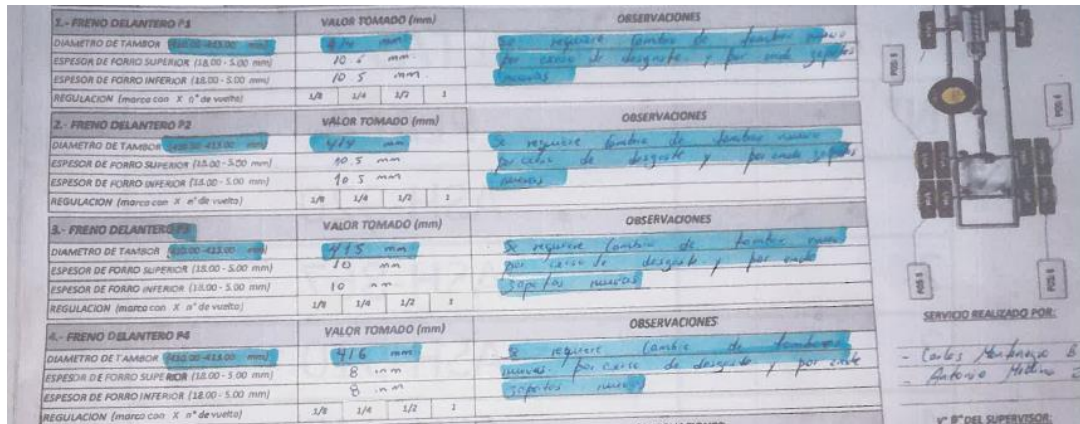 1.- FRENO DELANTERO P1 VALOR TOMADO (mm) OBSERVACIONES
DIAMETRO DE TAMBOR (410.00-413.00 mm) 414 mm Se requiere Cambio de tambor nuevo
ESPESOR DE FORRO SUPERIOR (18.00 - 5.00 mm) 10.5 mm. por exeso de desgaste y por ende zapatas
ESPESOR DE FORRO INFERIOR (18.00 - 5.00 mm) 10.5 mm. nuevas
REGULACION (marca con X n° de vuelta) 1/8 1/4 1/2 1
2.- FRENO DELANTERO P2 VALOR TOMADO (mm) OBSERVACIONES
DIAMETRO DE TAMBOR (410.00-413.00 mm) 414 mm Se requiere Cambio de tambor nuevo
ESPESOR DE FORRO SUPERIOR (18.00 - 5.00 mm) 10 5 mm por exeso de desgaste y por ende zapatas
ESPESOR DE FORRO INFERIOR (18.00 - 5.00 mm) 10 5 mm nuevas
REGULACION (marca con X n° de vuelta) 1/8 1/4 1/2 1
3.- FRENO DELANTERO P3 VALOR TOMADO (mm) OBSERVACIONES
DIAMETRO DE TAMBOR (410.00-413.00 mm) 415 mm Se requiere Cambio de tambor nuevo
ESPESOR DE FORRO SUPERIOR (18.00 - 5.00 mm) 10 mm por exeso de desgaste y por ende
ESPESOR DE FORRO INFERIOR (18.00 - 5.00 mm) 10 mm zapatas nuevas
REGULACION (marca con X n° de vuelta) 1/8 1/4 1/2 1
4.- FRENO DELANTERO P4 VALOR TOMADO (mm) OBSERVACIONES
DIAMETRO DE TAMBOR (410.00-413.00 mm) 416 mm Se requiere Cambio de tambores
ESPESOR DE FORRO SUPERIOR (18.00 - 5.00 mm) 8 mm nuevos por exeso de desgaste y por ende
ESPESOR DE FORRO INFERIOR (18.00 - 5.00 mm) 8 mm zapatas nuevas
REGULACION (marca con X n° de vuelta) 1/8 1/4 1/2 1
POS: 6
SERVICIO REALIZADO POR:
- Carlos
- Antonio
V° B° DEL SUPERVISOR: